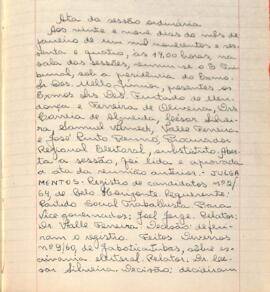 Ata da sessão ordinária
Aos vinte e nove dias do mês de
janeiro de um mil novecentos e ses-
senta e quatro, às 14,00 horas na
sala das sessões, reuniu-se o Tri-
bunal, sob a presidência do Exmo.
Sr. Des. Mello Júnior, presentes os
Exmos. Srs. Des. Furtado de Men-
donça e Ferreira de Oliveira, Drs.
Corrêa de Almeida, César Silvei-
ra, Samuel Werneck, Valle Ferreira
e José Pinto Renault, Procurador
Regional Eleitoral, substituto. Aber-
ta a sessão, foi lida e aprovada
a ata da reunião anterior. - JULGA
MENTOS: - Registro de candidatos nº
64, de Belo Horizonte. Requerente:
Partido Social Trabalhista. Para
vice-governador: Joel Jorge. Relator:
Dr. Valle Ferreira. Decisão: deferi-
ram o registro. Feitos Diversos
nº 9/60, de Jaboticatubas, sôbre es-
crivania eleitoral. Relator: Dr. Cé-
sar Silveira. Decisão: decidiram